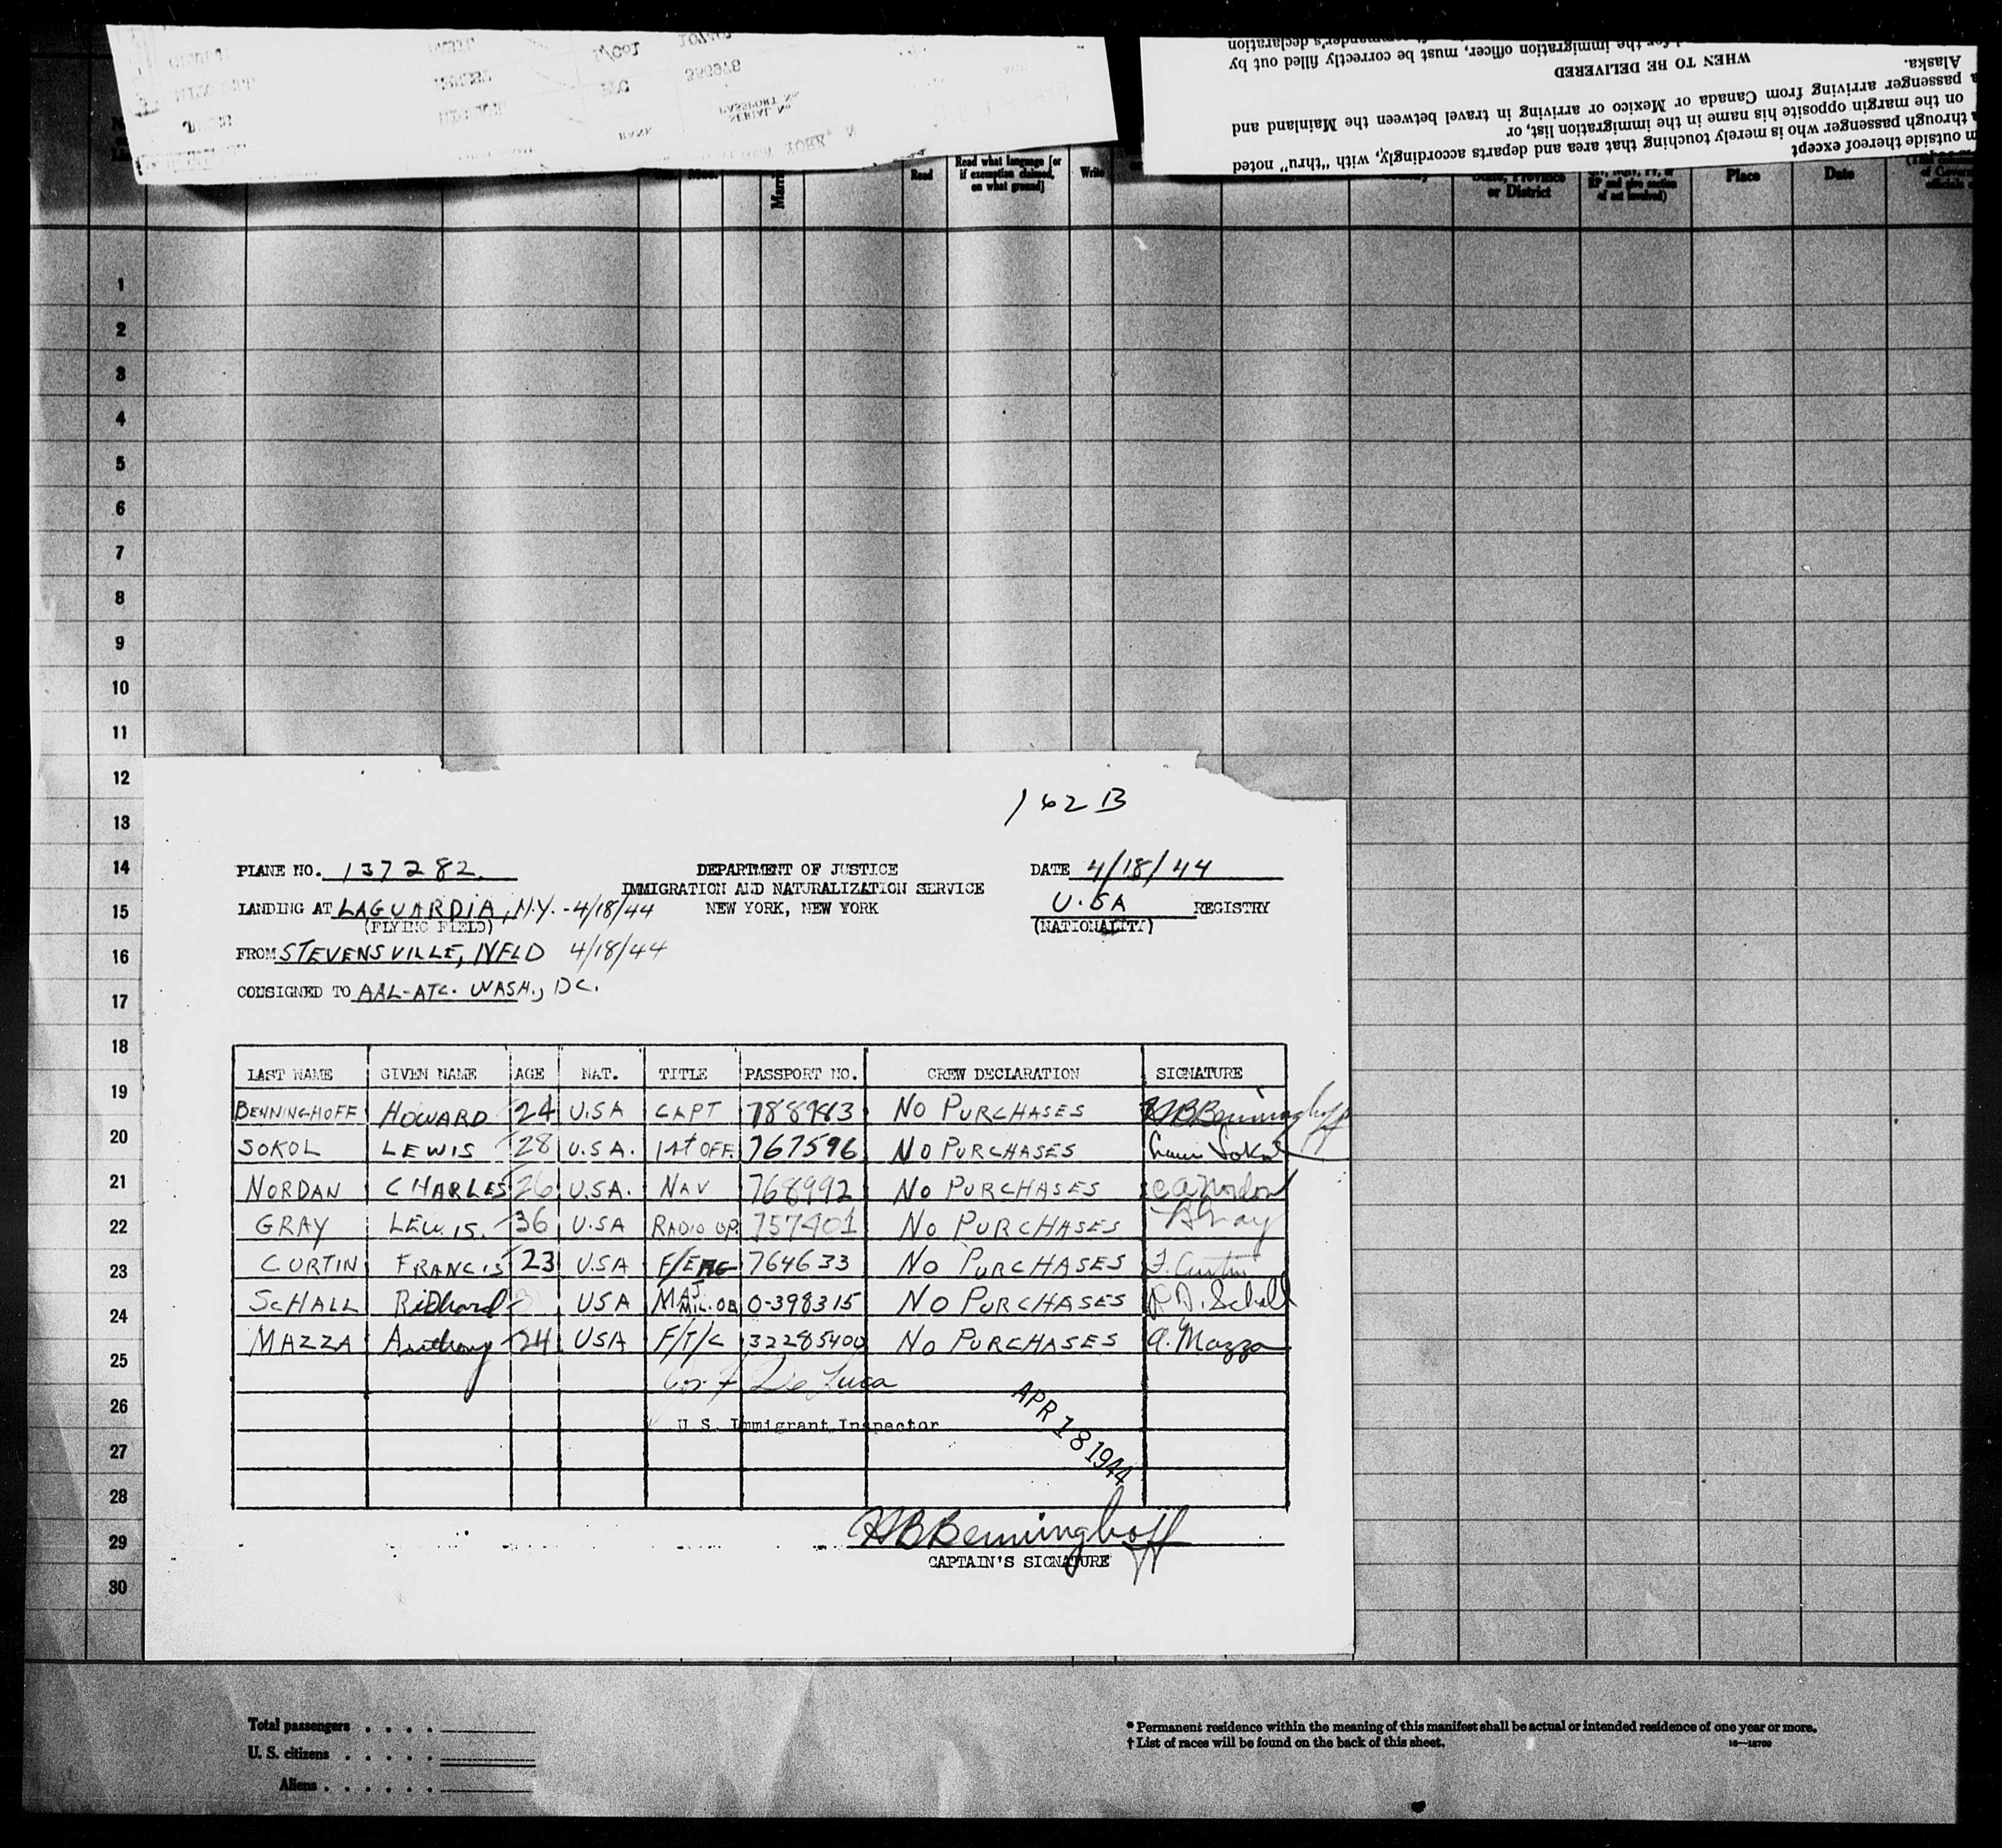 for the immigration officer, must be correctly filled out by
WHEN TO BE DELIVERED
Alaska.
passenger arriving from Canada or Mexico or arriving in travel between the Mainland and
on the margin opposite his name in the immigration list, or
through passenger who is merely touching that area and departs accordingly, with "thru" noted
outside thereof except
RANK
SERIAL No.
PASSPORT No.
Read
Read what language [or
if exemption claimed,
on what ground]
Write
or District
Place
Date
1
2
3
4
5
6
7
8
9
10
11
12
13
14
15
16
17
18
19
20
21
22
23
24
25
26
27
28
29
30
162 B
PLANE NO. 137282
DEPARTMENT OF JUSTICE
DATE 4/18/44
IMMIGRATION AND NATURALIZATION SERVICE
LANDING AT LAGUARDIA, N.Y. - 4/18/44
NEW YORK, NEW YORK
U.SA REGISTRY
(FLYING FIELD)
(NATIONALITY)
FROM STEVENSVILLE, NFLD 4/18/44
CONSIGNED TO AAL-ATC. WASH., DC.
LAST NAME GIVEN NAME AGE NAT. TITLE PASSPORT NO. CREW DECLARATION SIGNATURE
BENNINGHOFF HOWARD 24 U.SA CAPT 788983 NO PURCHASES HBBenninghoff
SOKOL LEWIS 28 U.S.A. 1st OFF. 767596 NO PURCHASES Lewis Sokol
NORDAN CHARLES 26 U.S.A. NAV 768992 NO PURCHASES C A Nordan
GRAY LEWIS. 36 U.SA RADIO OP. 757401 NO PURCHASES L Gray
CURTIN FRANCIS 23 U.SA F/ENG 764633 NO PURCHASES F. Curtin
SCHALL Richard USA MAJ MIL. OB 0-398315 NO PURCHASES R D. Schall
MAZZA Anthony 24 USA F/T/C 32285400 NO PURCHASES A. Mazza
De Luca
U.S. Immigrant Inspector
APR 18 1944
HBBenninghoff
CAPTAIN'S SIGNATURE
Total passengers . . . .
U. S. citizens . . . . .
Aliens . . . . . .
* Permanent residence within the meaning of this manifest shall be actual or intended residence of one year or more.
† List of races will be found on the back of this sheet.
16—18700